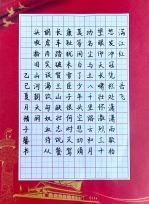 满江红 岳飞
怒发冲冠凭栏处潇潇雨歇抬
望眼仰天长啸壮怀激烈三十
功名尘与土八千里路云和月
莫等闲白了少年头空悲切靖
康耻犹未雪臣子恨何时灭驾
长车踏破贺兰山缺壮志饥餐
胡虏肉笑谈渴饮匈奴血待从
头收拾旧山河朝天阙
己亥夏月 书